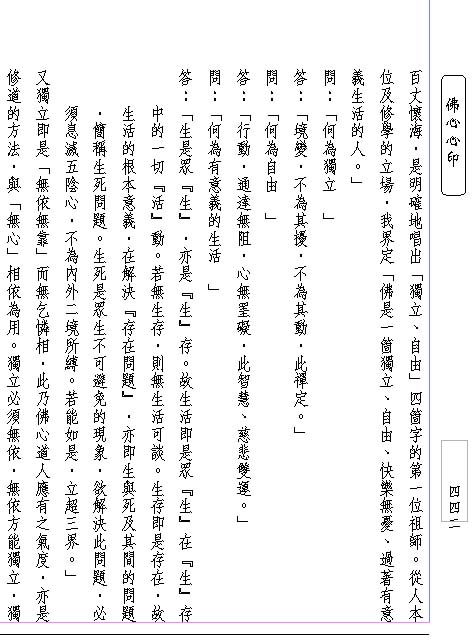 佛心心印
四四二
百丈懷海，是明確地唱出「獨立、自由」四箇字的第一位祖師。從人本
位及修學的立場，我界定「佛是一箇獨立、自由、快樂無憂、過著有意
義生活的人。」
問：「何為獨立　」
答：「境變，不為其擾，不為其動，此禪定。」
問：「何為自由　」
答：「行動，通達無阻，心無罣礙，此智慧、慈悲雙運。」
問：「何為有意義的生活　」
答：「生是眾『生』，亦是『生』存。故生活即是眾『生』在『生』存
中的一切『活』動。若無生存，則無生活可談。生存即是存在，故
生活的根本意義，在解決『存在問題』，亦即生與死及其間的問題
，簡稱生死問題。生死是眾生不可避免的現象，欲解決此問題，必
須息滅五陰心，不為內外二境所縛。若能如是，立超三界。」
又獨立即是「無依無靠」而無乞憐相，此乃佛心道人應有之氣度，亦是
修道的方法，與「無心」相依為用。獨立必須無依，無依方能獨立，獨